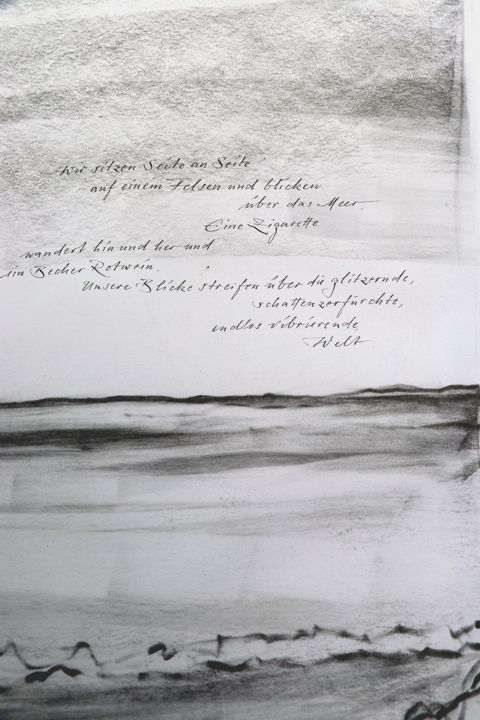 Wir sitzen Seite an Seite
auf einem Felsen und blicken
über das Meer.
Eine Zigarette
wandert hin und her und
ein Becher Rotwein.
Unsere Blicke streifen über die glitzernde,
schattenzerfurchte,
endlos vibrierende
Welt.